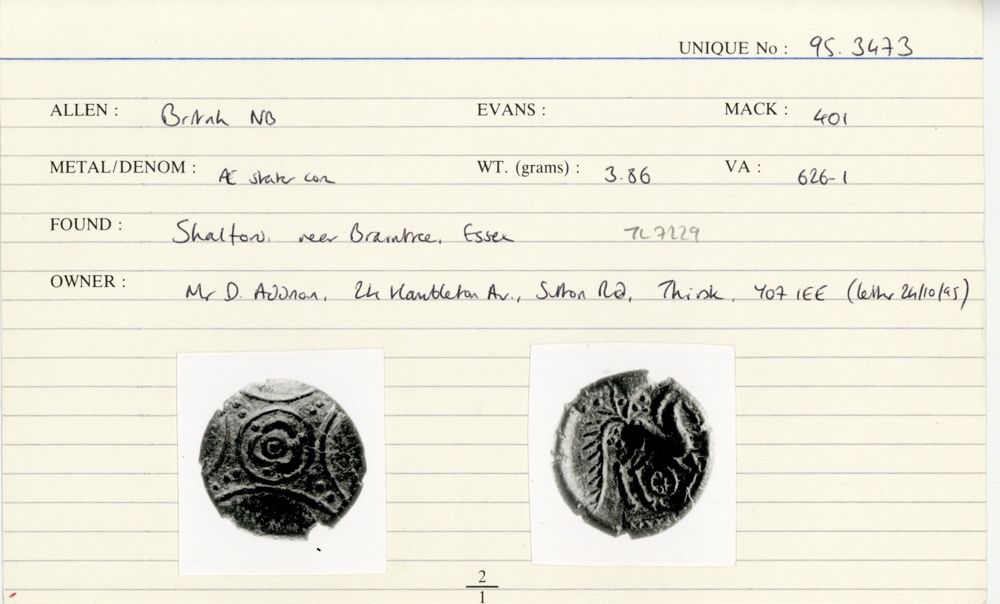 UNIQUE No : 95. 3473
ALLEN : British NB EVANS : MACK : 401
METAL/DENOM : Æ stater core WT. (grams) : 3.86 VA : 626-1
FOUND : Shalford, near Braintree, Essex TL 7229
OWNER : Mr D. 24 Hambleton Av., Sutton Rd, Thirsk, YO7 1EE (letter 24/10/95)
2
1